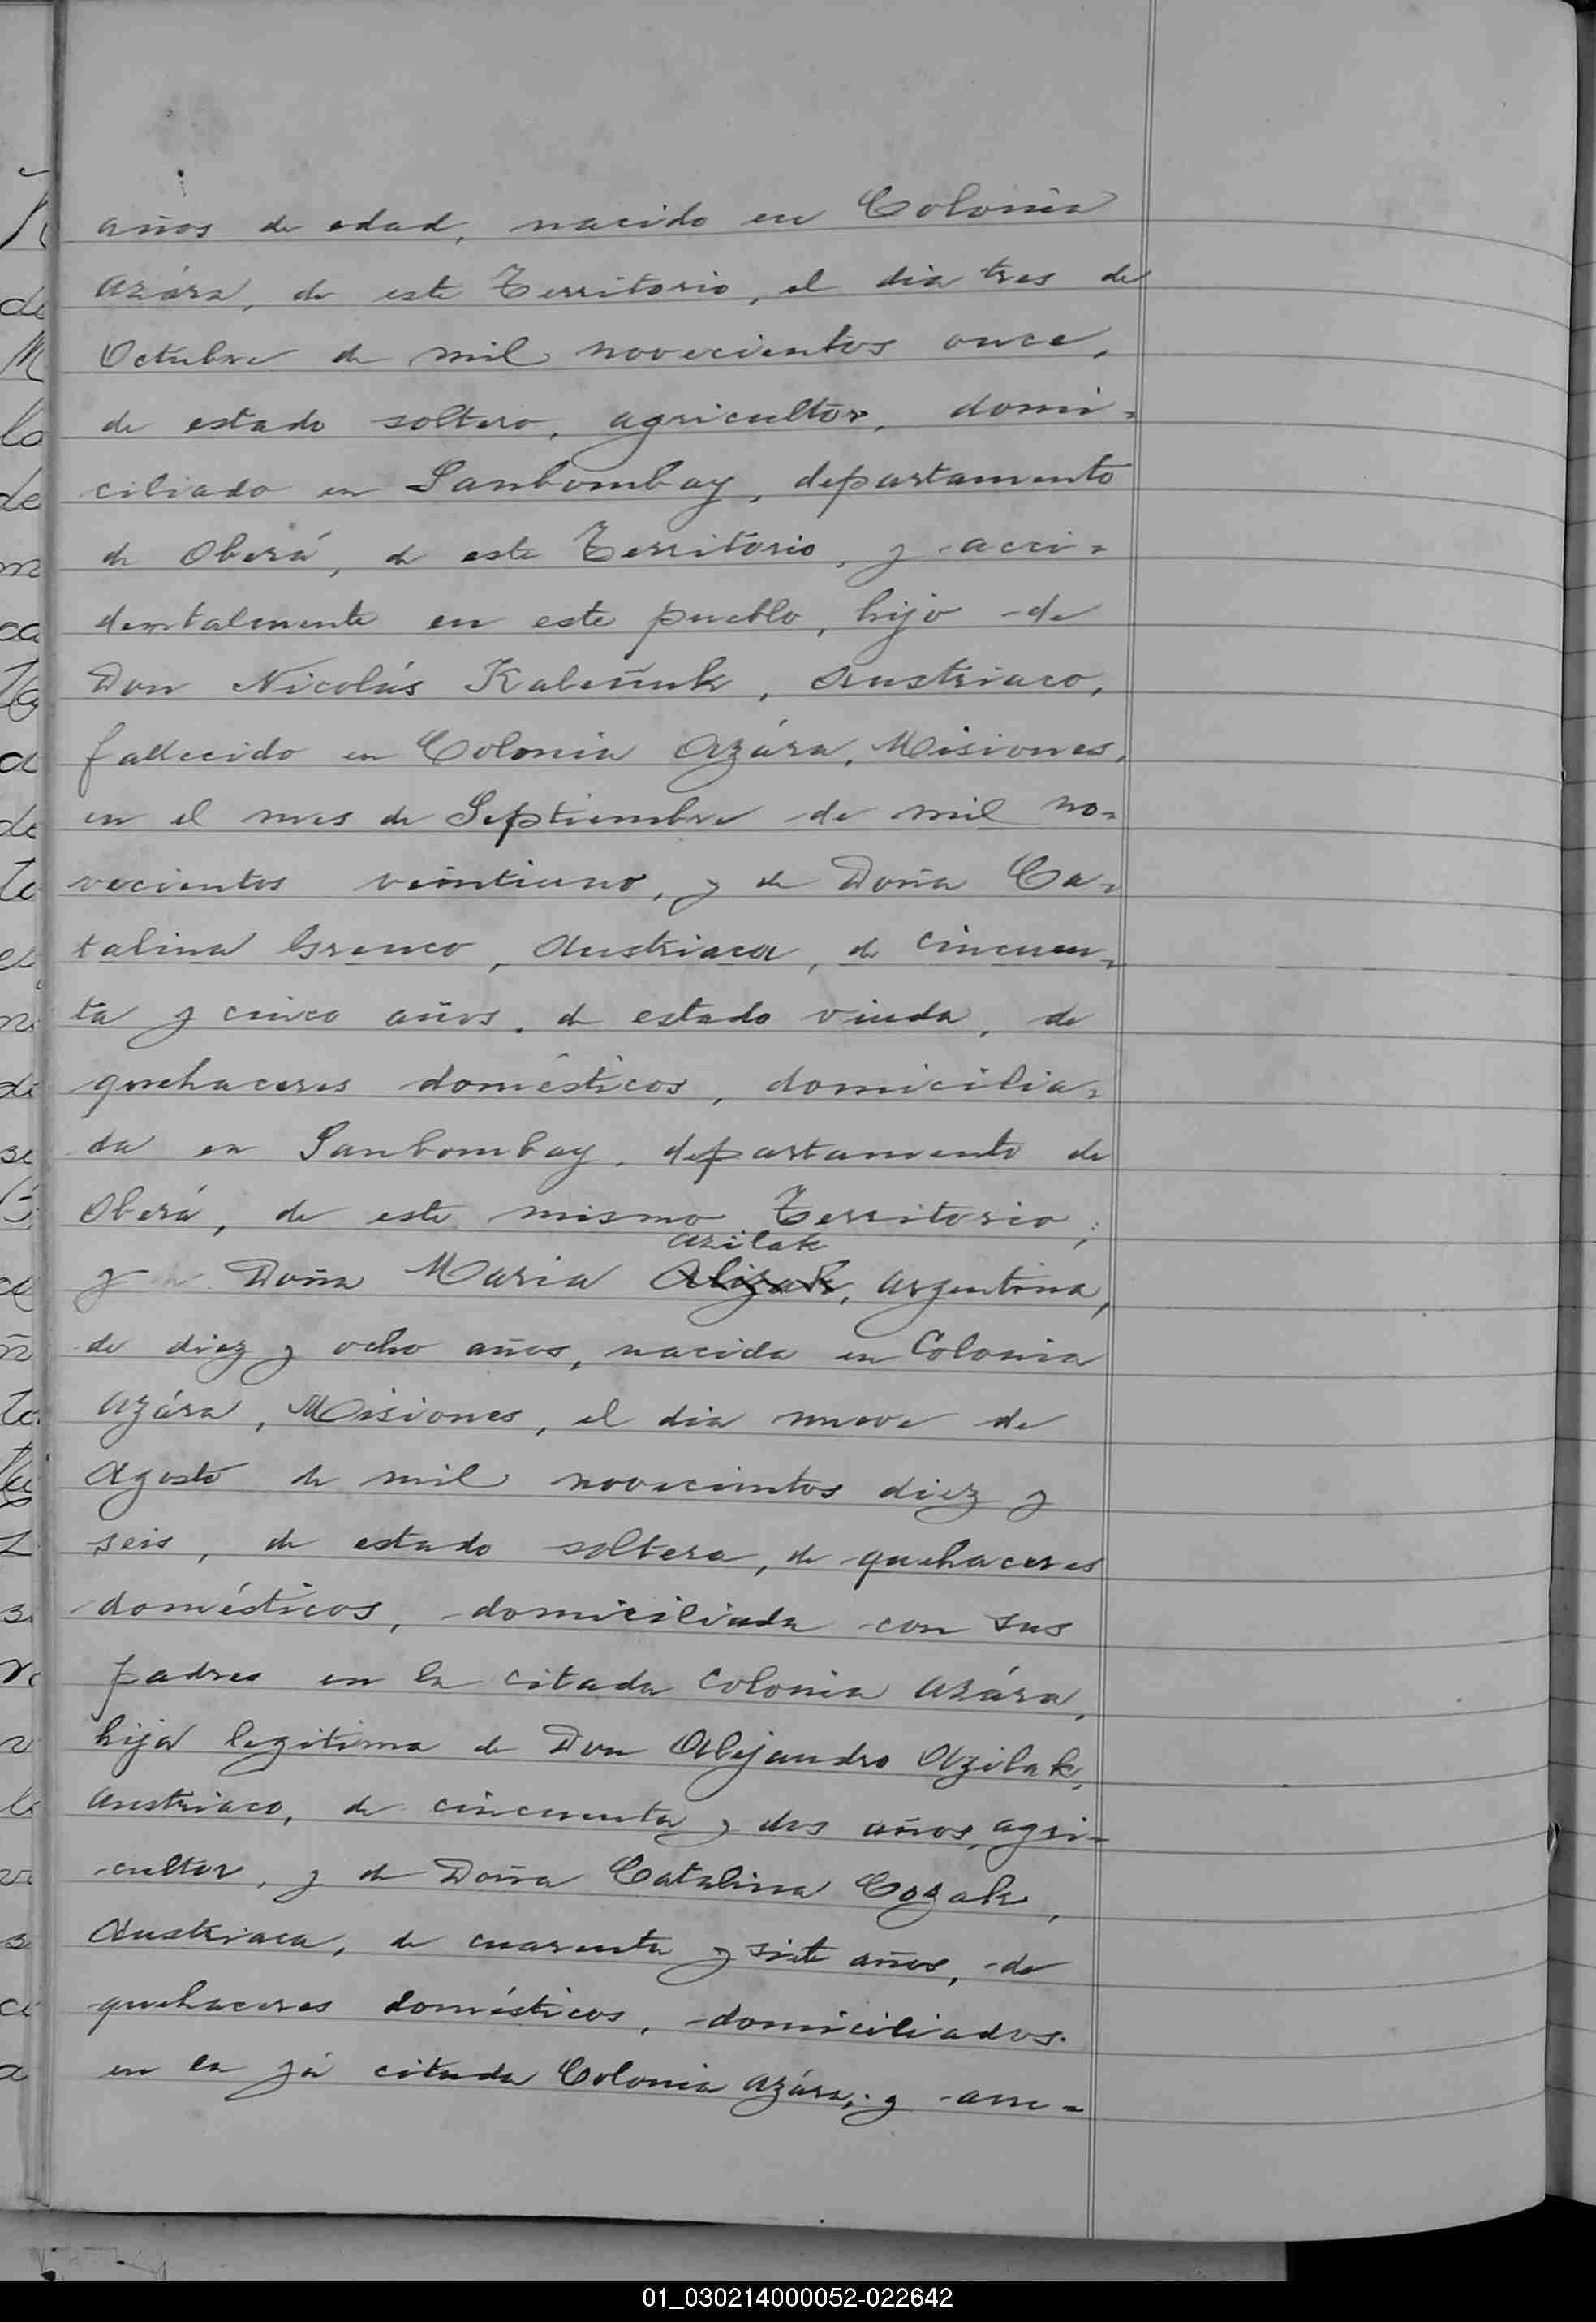 años de edad, nacido en Colonia
Azára, de este Territorio, el dia tres de
Octubre de mil novecientos once,
de estado soltero, agricultor, domi-
ciliado en Sanbombay, departamento
de Oberá, de este Territorio, y acci-
dentalmente en este pueblo, hijo de
Don Nicolás Kaleñuk, Austriaco,
fallecido en Colonia Azára, Misiones,
en el mes de Septiembre de mil no-
vecientos veintiuno, y de Doña Ca-
talina Grenco, Austriaca, de cincuen-
ta y cinco años, de estado viuda, de
quehaceres domésticos, domicilia-
da en Sanbombay, departamento de
Oberá, de este mismo Territorio;
Azilak
y Doña Maria Alizak, argentina,
de diez y ocho años, nacida en Colonia
Azára, Misiones, el dia nueve de
Agosto de mil novecientos diez y
seis, de estado soltera, de quehaceres
domésticos, domiciliada con sus
padres en la citada Colonia Azára,
hija legitima de Don Alejandro Azilak,
Austriaco, de cincuenta y dos años, agri-
cultor, y de Doña Catalina Cozak,
Austriaca, de cuarenta y siete años, de
quehaceres domésticos, domiciliados
en la yá citada Colonia Azára; y
01_030214000052-022642